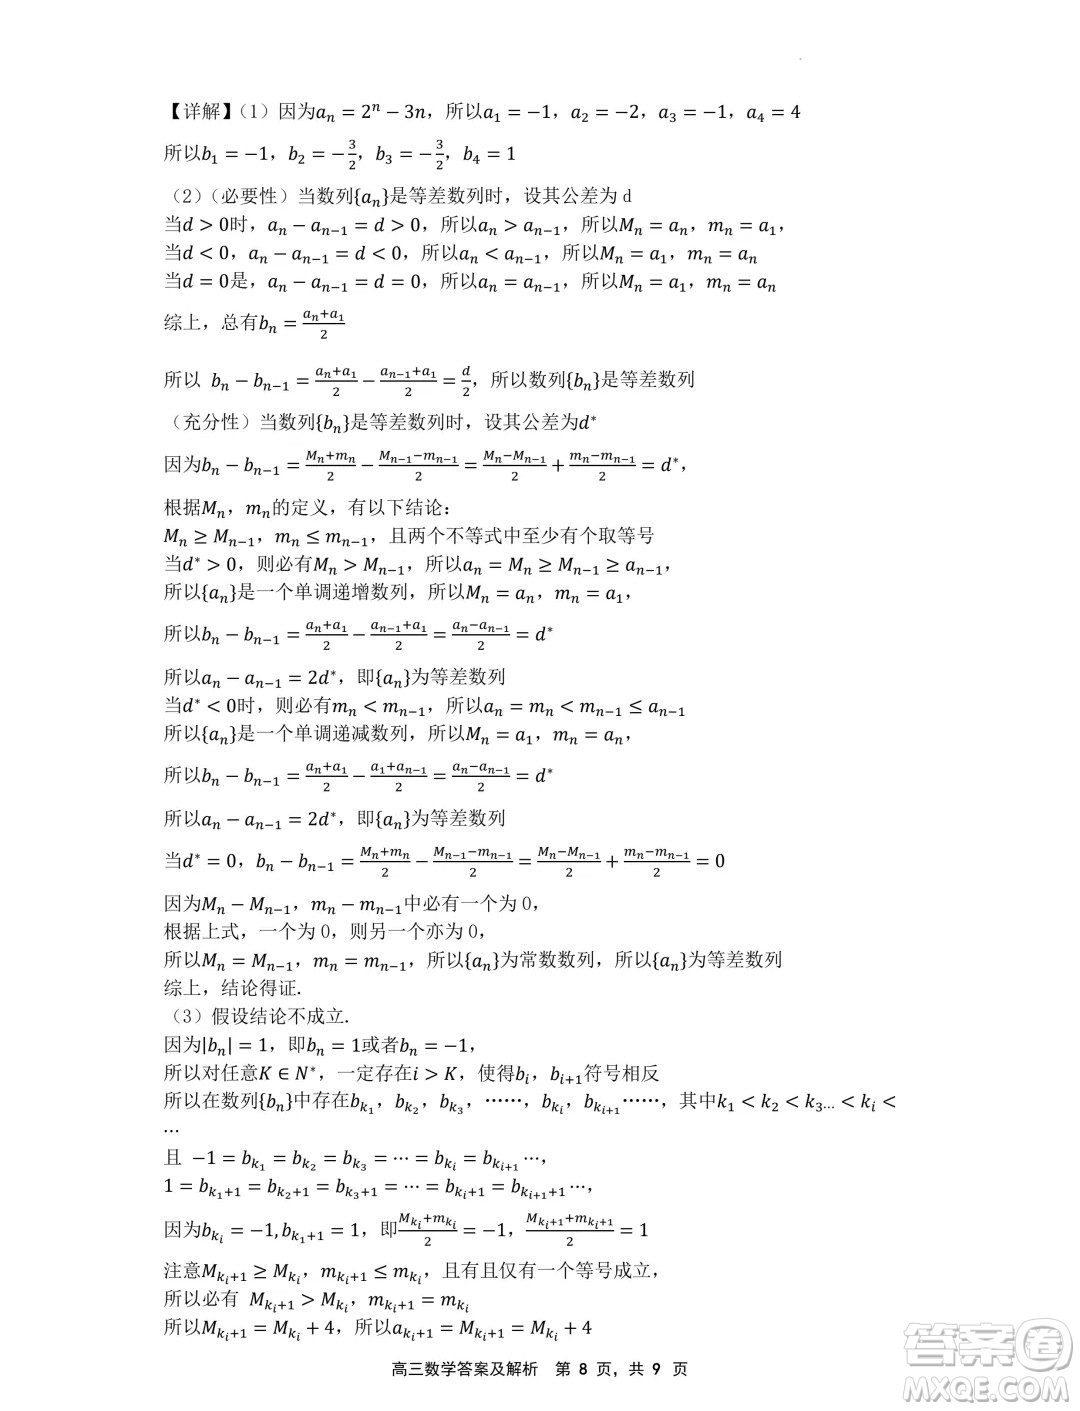 【详解】（1）因为aₙ = 2ⁿ − 3n，所以a₁ = −1，a₂ = −2，a₃ = −1，a₄ = 4
所以b₁ = −1，b₂ = −3/2，b₃ = −3/2，b₄ = 1
（2）（必要性）当数列{aₙ}是等差数列时，设其公差为 d
当d > 0时，aₙ − aₙ₋₁ = d > 0，所以aₙ > aₙ₋₁，所以Mₙ = aₙ，mₙ = a₁，
当d < 0，aₙ − aₙ₋₁ = d < 0，所以aₙ < aₙ₋₁，所以Mₙ = a₁，mₙ = aₙ
当d = 0是，aₙ − aₙ₋₁ = d = 0，所以aₙ = aₙ₋₁，所以Mₙ = a₁，mₙ = aₙ
综上，总有bₙ = (aₙ+a₁)/2
所以 bₙ − bₙ₋₁ = (aₙ+a₁)/2 − (aₙ₋₁+a₁)/2 = d/2，所以数列{bₙ}是等差数列
（充分性）当数列{bₙ}是等差数列时，设其公差为d*
因为bₙ − bₙ₋₁ = (Mₙ+mₙ)/2 − (Mₙ₋₁−mₙ₋₁)/2 = (Mₙ−Mₙ₋₁)/2 + (mₙ−mₙ₋₁)/2 = d*，
根据Mₙ，mₙ的定义，有以下结论：
Mₙ ≥ Mₙ₋₁，mₙ ≤ mₙ₋₁，且两个不等式中至少有个取等号
当d* > 0，则必有Mₙ > Mₙ₋₁，所以aₙ = Mₙ ≥ Mₙ₋₁ ≥ aₙ₋₁，
所以{aₙ}是一个单调递增数列，所以Mₙ = aₙ，mₙ = a₁，
所以bₙ − bₙ₋₁ = (aₙ+a₁)/2 − (aₙ₋₁+a₁)/2 = (aₙ−aₙ₋₁)/2 = d*
所以aₙ − aₙ₋₁ = 2d*，即{aₙ}为等差数列
当d* < 0时，则必有mₙ < mₙ₋₁，所以aₙ = mₙ < mₙ₋₁ ≤ aₙ₋₁
所以{aₙ}是一个单调递减数列，所以Mₙ = a₁，mₙ = aₙ，
所以bₙ − bₙ₋₁ = (aₙ+a₁)/2 − (a₁+aₙ₋₁)/2 = (aₙ−aₙ₋₁)/2 = d*
所以aₙ − aₙ₋₁ = 2d*，即{aₙ}为等差数列
当d* = 0，bₙ − bₙ₋₁ = (Mₙ+mₙ)/2 − (Mₙ₋₁−mₙ₋₁)/2 = (Mₙ−Mₙ₋₁)/2 + (mₙ−mₙ₋₁)/2 = 0
因为Mₙ − Mₙ₋₁，mₙ − mₙ₋₁中必有一个为 0，
根据上式，一个为 0，则另一个亦为 0，
所以Mₙ = Mₙ₋₁，mₙ = mₙ₋₁，所以{aₙ}为常数数列，所以{aₙ}为等差数列
综上，结论得证.
（3）假设结论不成立.
因为|bₙ| = 1，即bₙ = 1或者bₙ = −1，
所以对任意K ∈ N*，一定存在i > K，使得b_i，b_{i+1}符号相反
所以在数列{bₙ}中存在b_{k₁}，b_{k₂}，b_{k₃}，……，b_{k_i}，b_{k_{i+1}}……，其中k₁ < k₂ < k₃… < k_i <
…
且 −1 = b_{k₁} = b_{k₂} = b_{k₃} = ⋯ = b_{k_i} = b_{k_{i+1}} ⋯，
1 = b_{k₁+1} = b_{k₂+1} = b_{k₃+1} = ⋯ = b_{k_i+1} = b_{k_{i+1}+1} ⋯，
因为b_{k_i} = −1, b_{k₁+1} = 1，即(M_{k_i}+m_{k_i})/2 = −1，(M_{k_i+1}+m_{k_i+1})/2 = 1
注意M_{k_i+1} ≥ M_{k_i}，m_{k_i+1} ≤ m_{k_i}，且有且仅有一个等号成立，
所以必有 M_{k_i+1} > M_{k_i}，m_{k_i+1} = m_{k_i}
所以M_{k_i+1} = M_{k_i} + 4，所以a_{k_i+1} = M_{k_i+1} = M_{k_i} + 4
高三数学答案及解析 第 8 页，共 9 页
答案圈
MXQE.COM